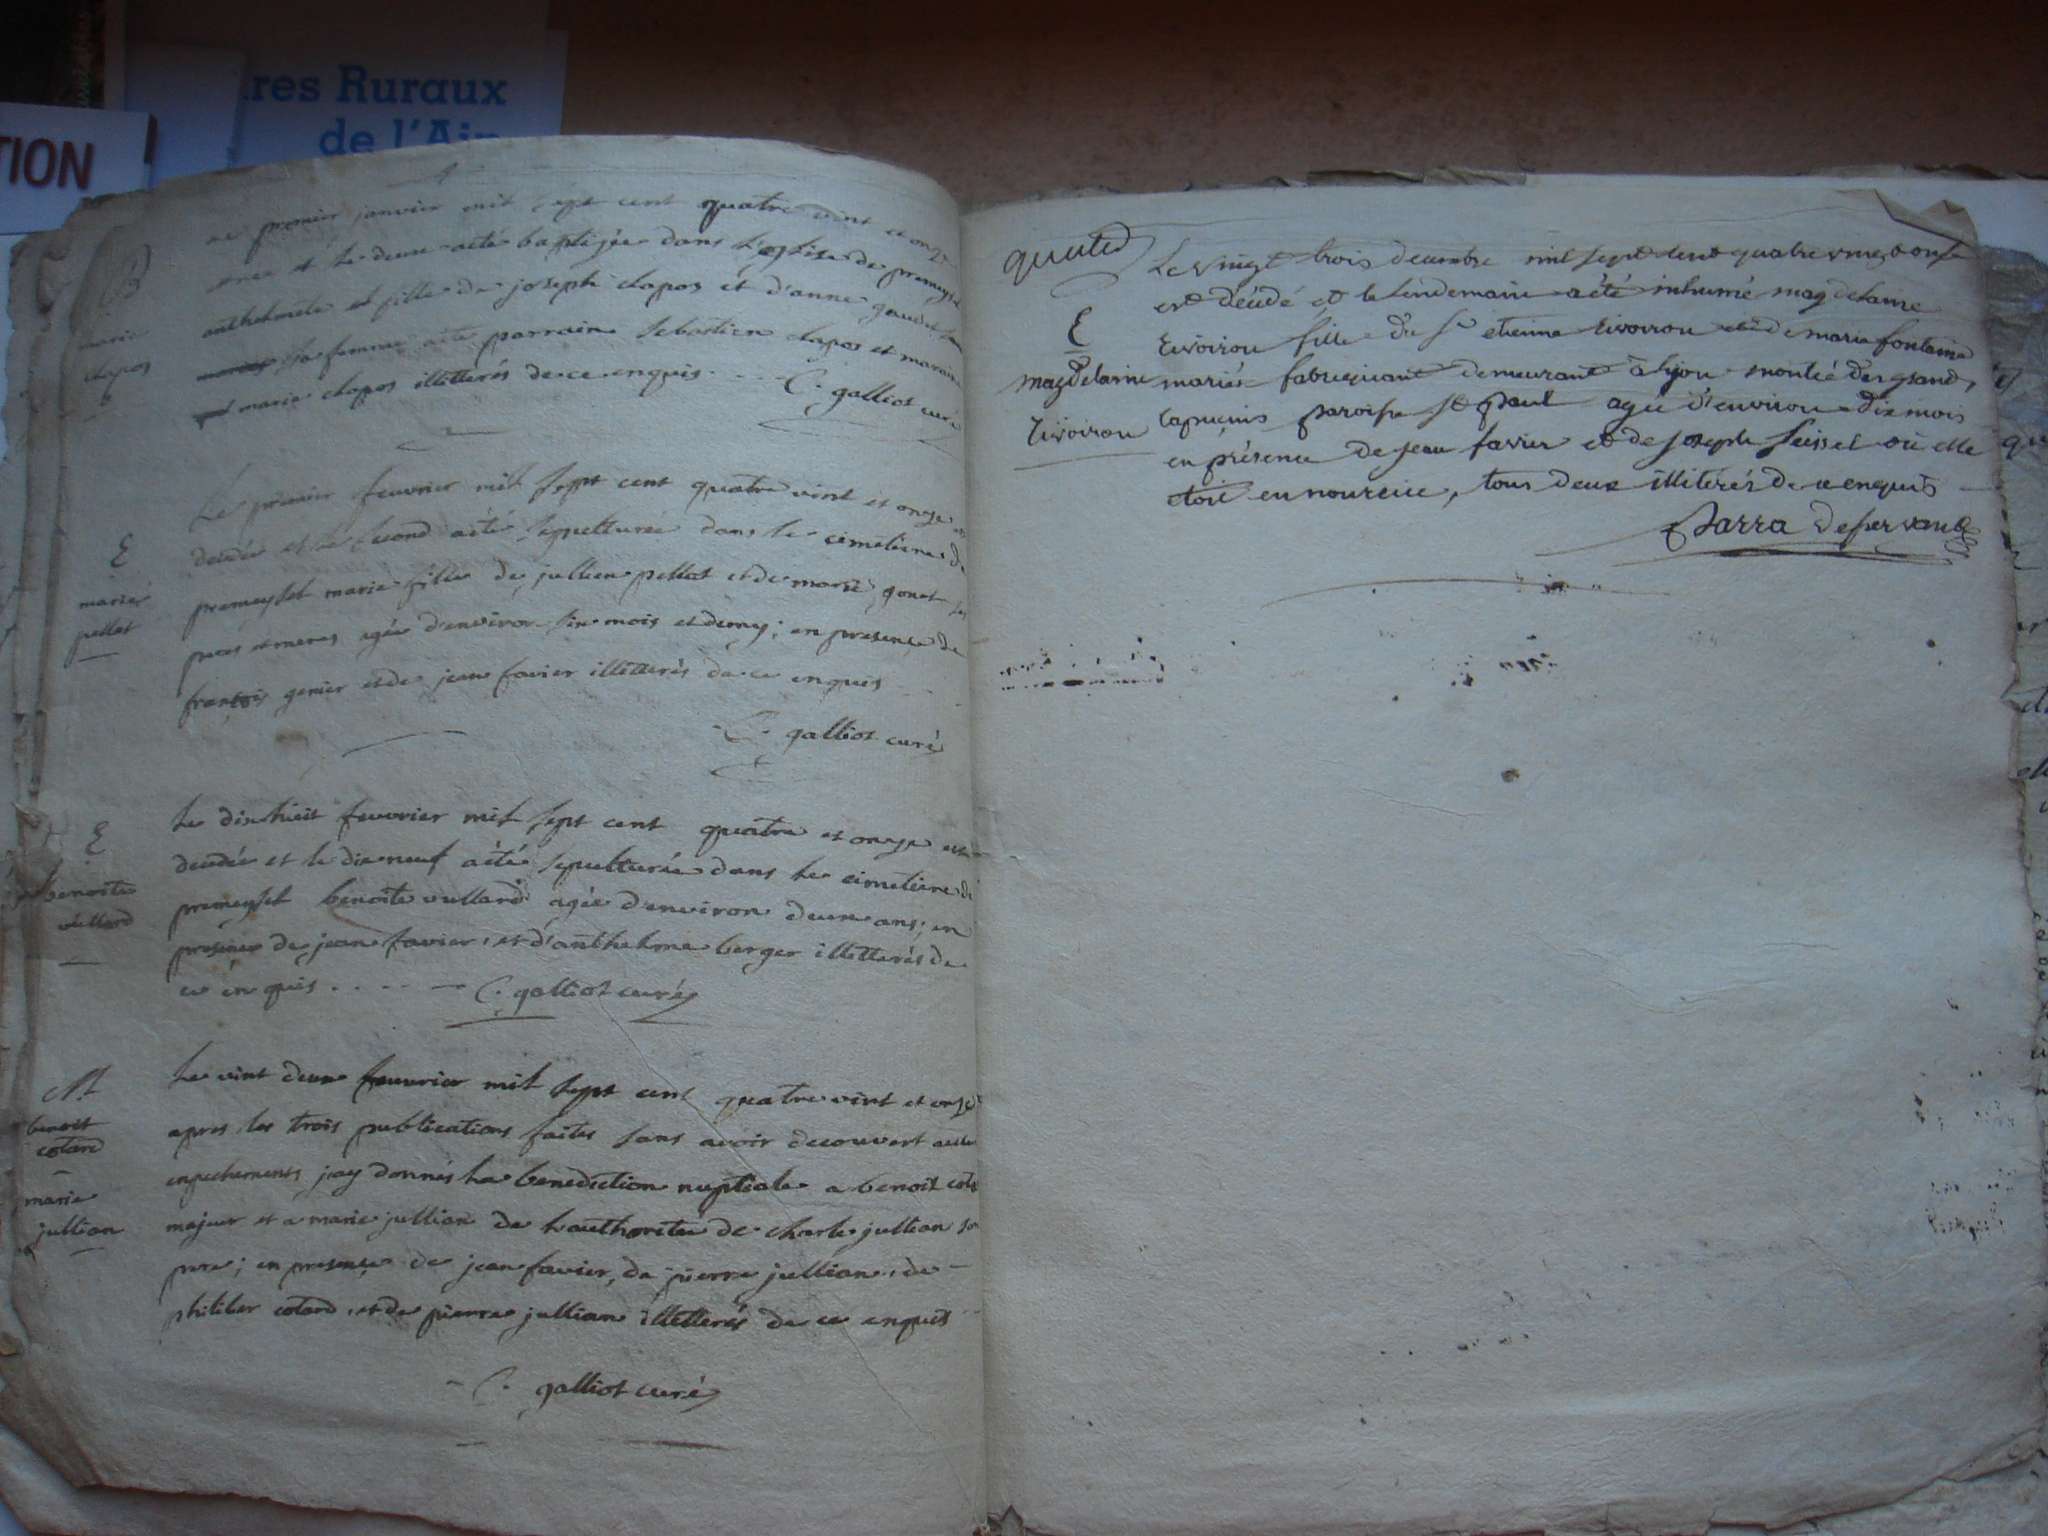 res Ruraux
de l'Ain
TION
premier janvier mil sept cent quatre vint et onze
née et le deux a été baptisée dans l'eglise de premeysel
anthelmete fille de joseph clapos et d'anne
sa femme parrain sebastien clapos et maraine
marie clapos illetterés de ce enquis. C. galliot curé
marie
clapos
Le premier feuvrier mil sept cent quatre vint et onze est
decedée et le second a été sepulturée dans le cimetiere de
premeysel marie fille de jullien pellat et de marie gonet ses
peres et meres agée d'environ six mois et demy; en presence de
françois genier et de jean favier illetterés de ce enquis
C. galliot curé
E
marie
pellat
Le dix huit feuvrier mil sept cent quatre et onze est
decedée et le dix neuf a été sepulturée dans le cimetiere de
premeysel benoite vullard agée d'environ deux ans; en
presence de jean favier, et d'anthelme berger illetterés de
ce enquis C. galliot curé
E
benoite
vullard
Le vint deux feuvrier mil sept cent quatre vint et onze
apres les trois publications faites sans avoir decouvert
enpechements j'ay donnés la benediction nuptiale a benoit
majeur et a marie jullian de l'authorite de charle jullian son
pere; en presence de jean favier, de pierre jullian, de
philiber cotard, et de pierre jullian illetterés de ce enquis
C. galliot curé
M
benoit
cotard
marie
jullian
Le vingt trois decembre mil sept cent quatre vingt onse
est décédé et le lendemain a été inhumé magdelaine
Rivoirou fille du Sr etienne Rivoirou et de marie fontaine
mariés fabriquant demeurant à lyon montée des grands
Capucins paroisse St paul agée d'environ dix mois
en présence de jean favier et de joseph Seissel où elle
etoit en nourrice, tous deux illiterés de ce enquis
Parra deservant
E
magdelaine
Rivoirou